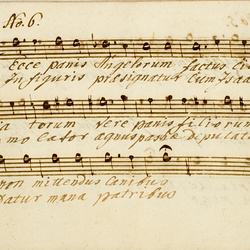 No. 6.
Ecce panis Angelorum factus Ci
In figuris presignatur Cum Isaa
torum vere panis filiorum
mo latur agnus pascæ deputa
non mittendus canibus
Datur mana patribus